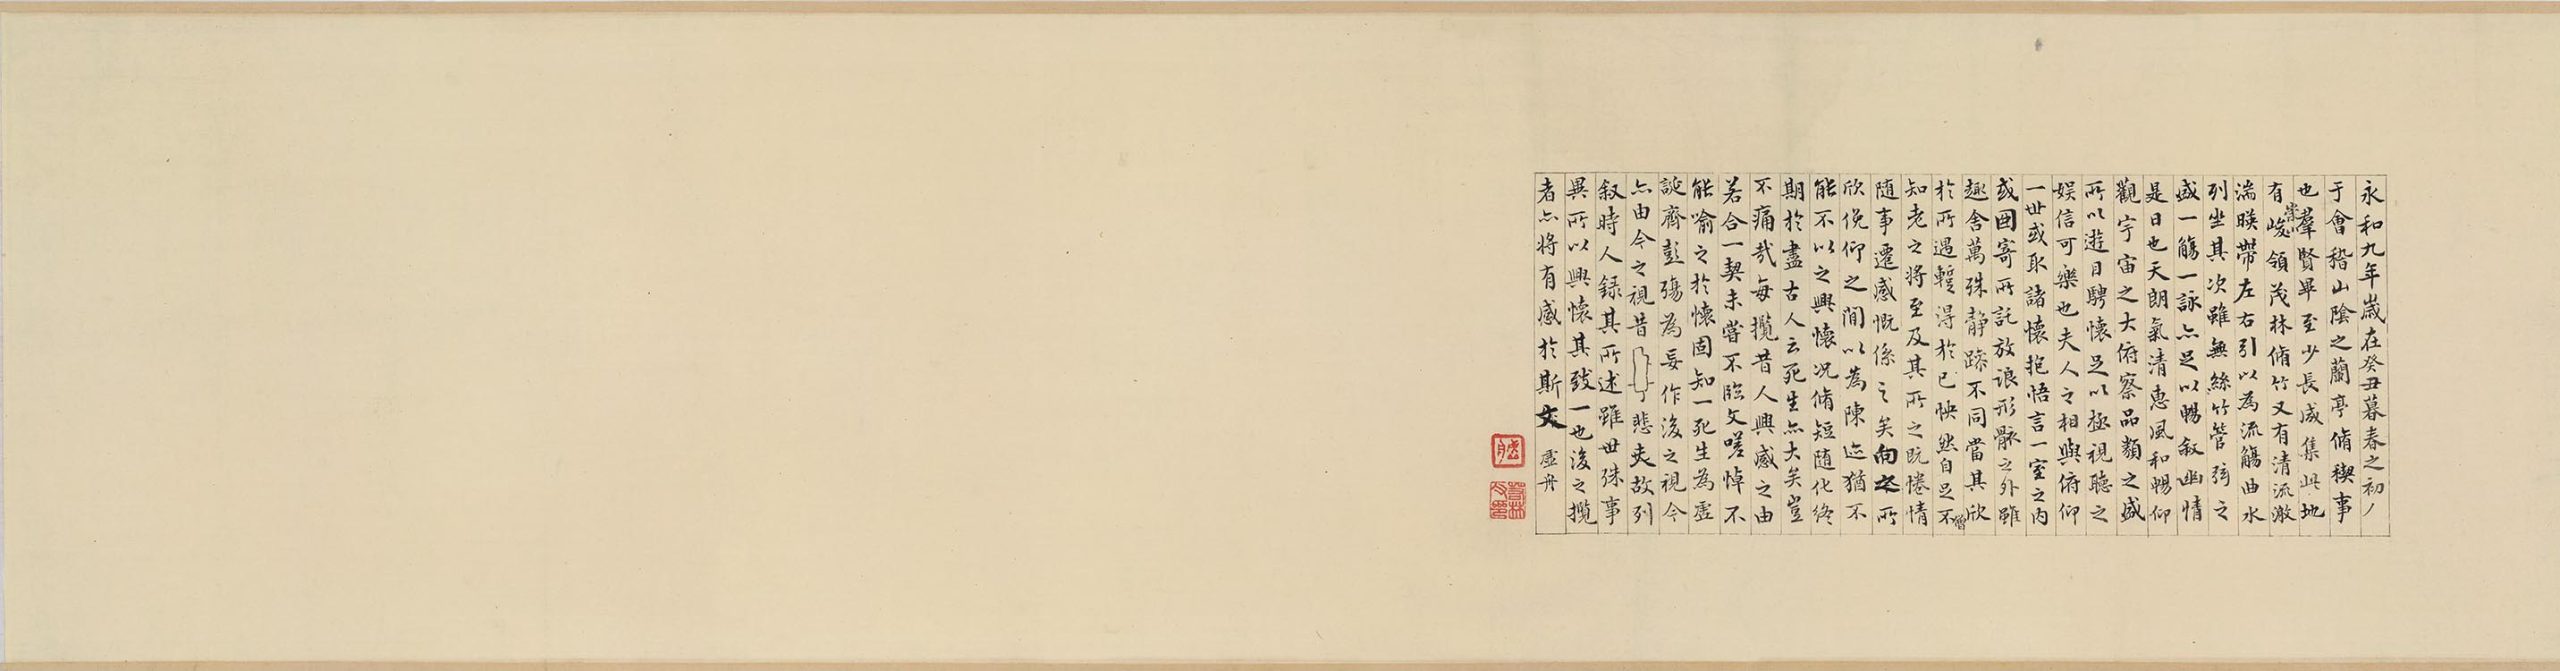 永和九年歲在癸丑暮春之初
于會稽山陰之蘭亭脩稧事
也羣賢畢至少長咸集此地
有崇峻領茂林脩竹又有清流激
湍暎帶左右引以為流觴曲水
列坐其次雖無絲竹管弦之
盛一觴一詠亦足以暢敘幽情
是日也天朗氣清惠風和暢仰
觀宇宙之大俯察品類之盛
所以遊目騁懷足以極視聽之
娛信可樂也夫人之相與俯仰
一世或取諸懷抱悟言一室之內
或因寄所託放浪形骸之外雖
趣舍萬殊靜躁不同當其欣
於所遇蹔得於己怏然自足不
知老之將至及其所之既惓情
隨事遷感慨係之矣向之所
欣俛仰之間以為陳迹猶不
能不以之興懷況脩短隨化終
期於盡古人云死生亦大矣豈
不痛哉每攬昔人興感之由
若合一契未嘗不臨文嗟悼不
能喻之於懷固知一死生為虛
誕齊彭殤為妄作後之視今
亦由今之視昔悲夫故列
敘時人錄其所述雖世殊事
異所以興懷其致一也後之攬
者亦將有感於斯文 虛舟